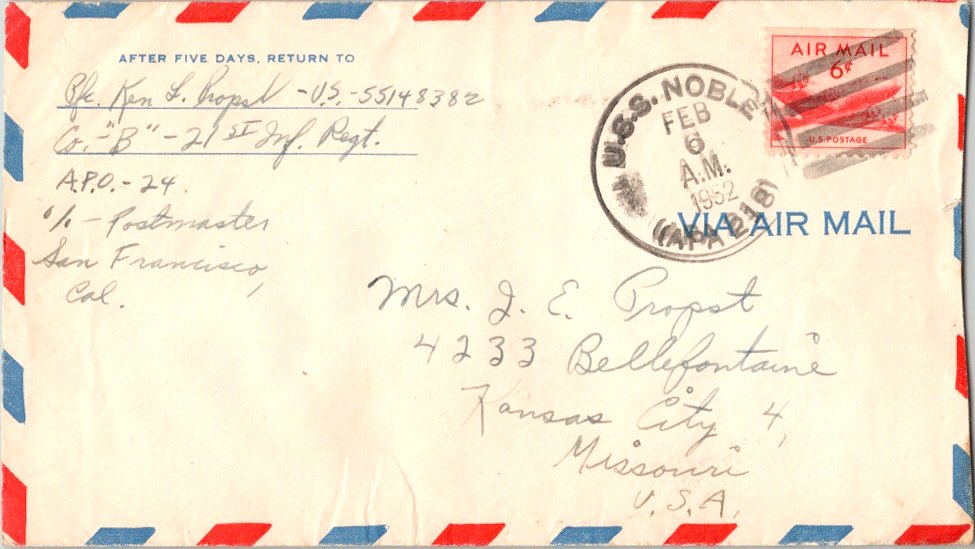 AFTER FIVE DAYS, RETURN TO
Pfc. Ken L. Propst - U.S. - 55148382
Co. - "B" - 21 ST Inf. Regt.
A.P.O. - 24
c/o - Postmaster
San Francisco,
Cal.
U.S.S. NOBLE
FEB
6
A.M.
1952
(APA 218)
AIR MAIL
6¢
U.S. POSTAGE
VIA AIR MAIL
Mrs. J. E. Propst
4233 Bellefontaine
Kansas City 4,
Missouri
U.S.A.